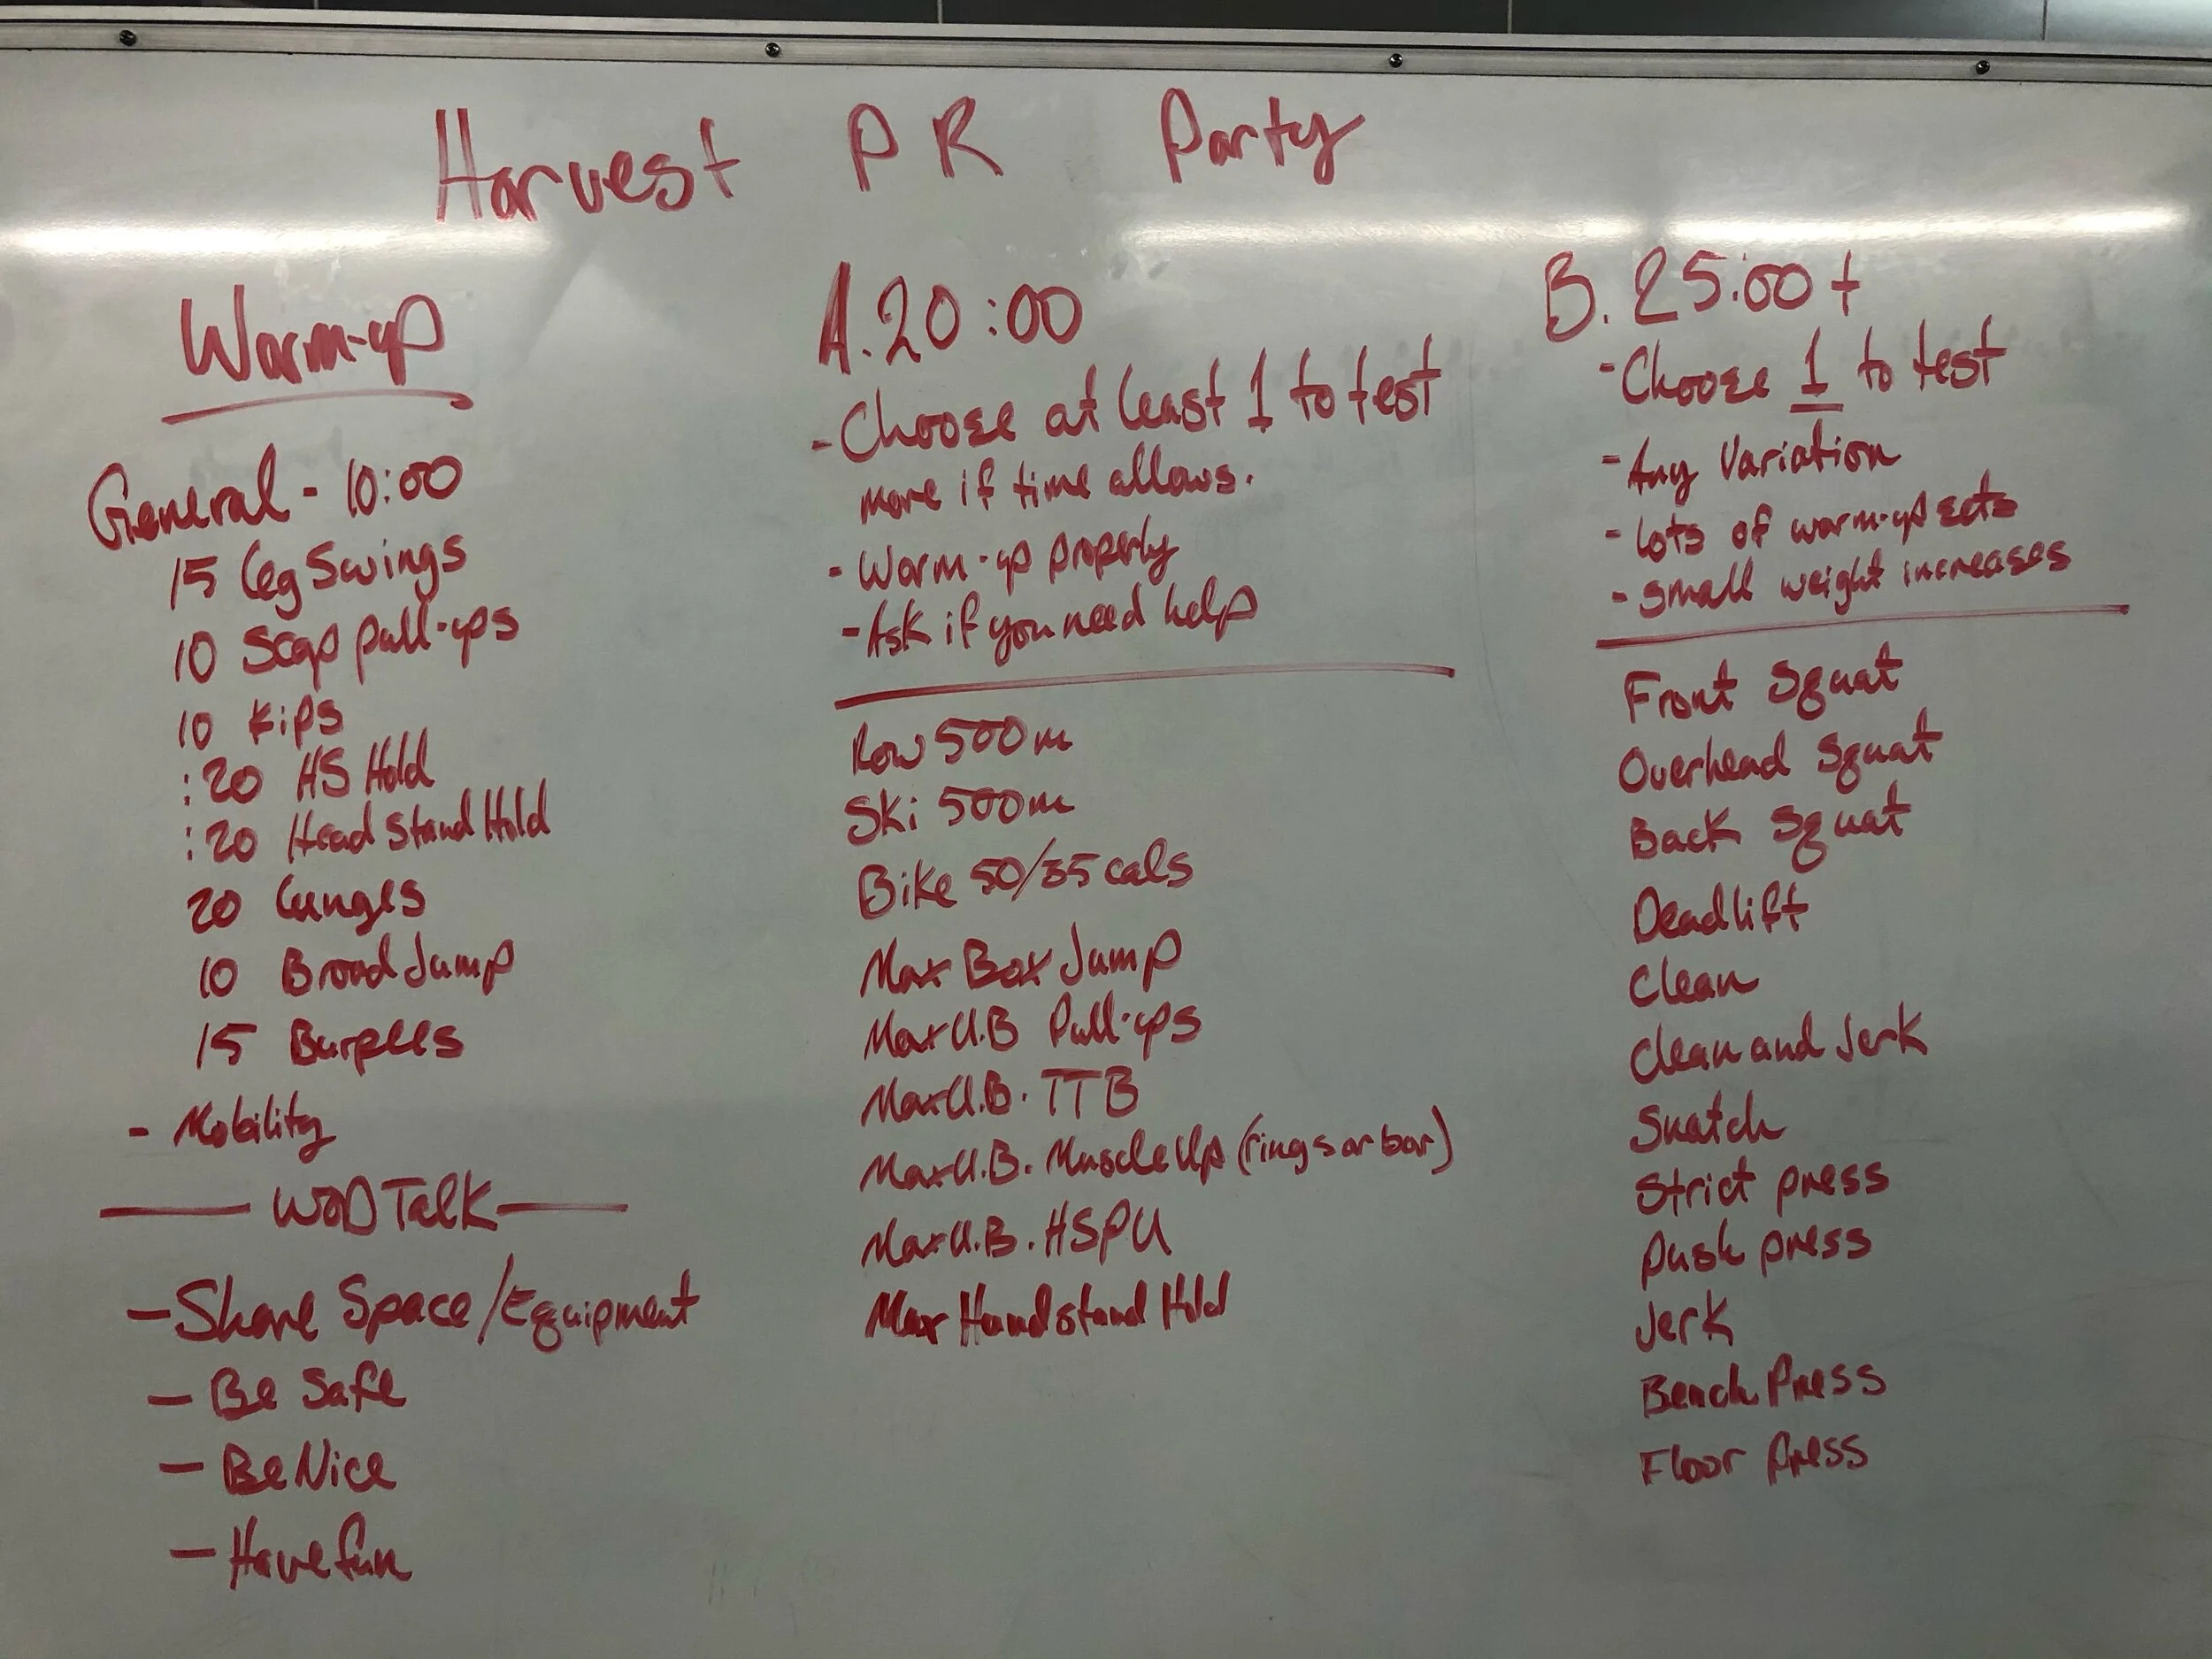 Harvest PR Party
Warm-up
General - 10:00
15 Leg Swings
10 Scap pull-ups
10 Kips
:20 HS Hold
:20 Head Stand Hold
20 Lunges
10 Broad Jump
15 Burpees
- Mobility
WOD Talk
- Share Space/Equipment
- Be Safe
- Be Nice
- Have fun
A. 20:00
- Choose at least 1 to test
more if time allows.
- Warm-up properly
- Ask if you need help
Row 500m
Ski 500m
Bike 50/35 cals
Max Box Jump
Max U.B Pull-ups
Max U.B. TTB
Max U.B. Muscle Up (rings or bar)
Max U.B. HSPU
Max Handstand Hold
B. 25:00+
- Choose 1 to test
- Any Variation
- Lots of warm-up sets
- small weight increases
Front Squat
Overhead Squat
Back Squat
Deadlift
Clean
Clean and Jerk
Snatch
Strict press
Push press
Jerk
Bench Press
Floor Press